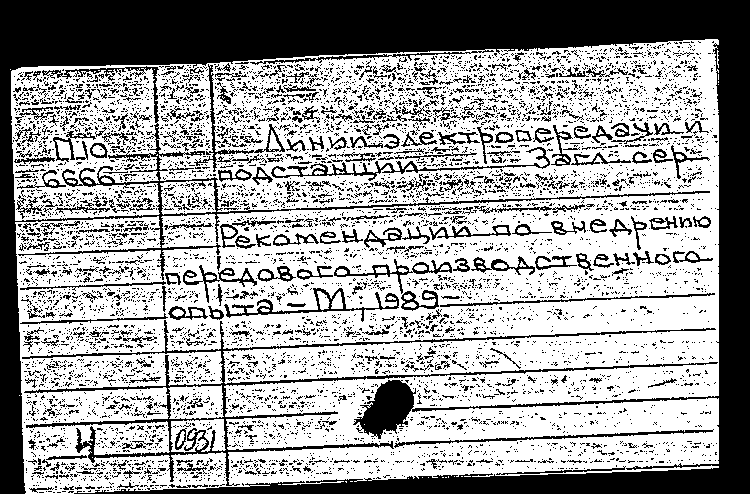 П1о
6666
Линии электропередачи и
подстанции - Загл. сер.
Рекомендации по внедрению
передового производственного
опыта - М., 1989-
Ч 0931